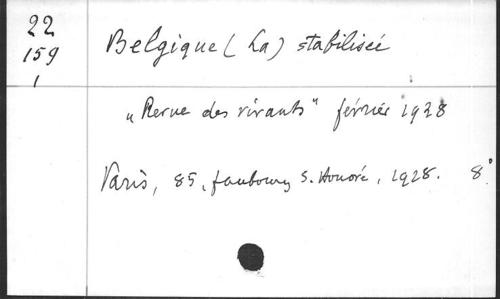 22
159
1
Belgique (La) stabilisée
"Revue des vivants" février 1928
Paris, 85, faubourg S. Honoré, 1928. 8°